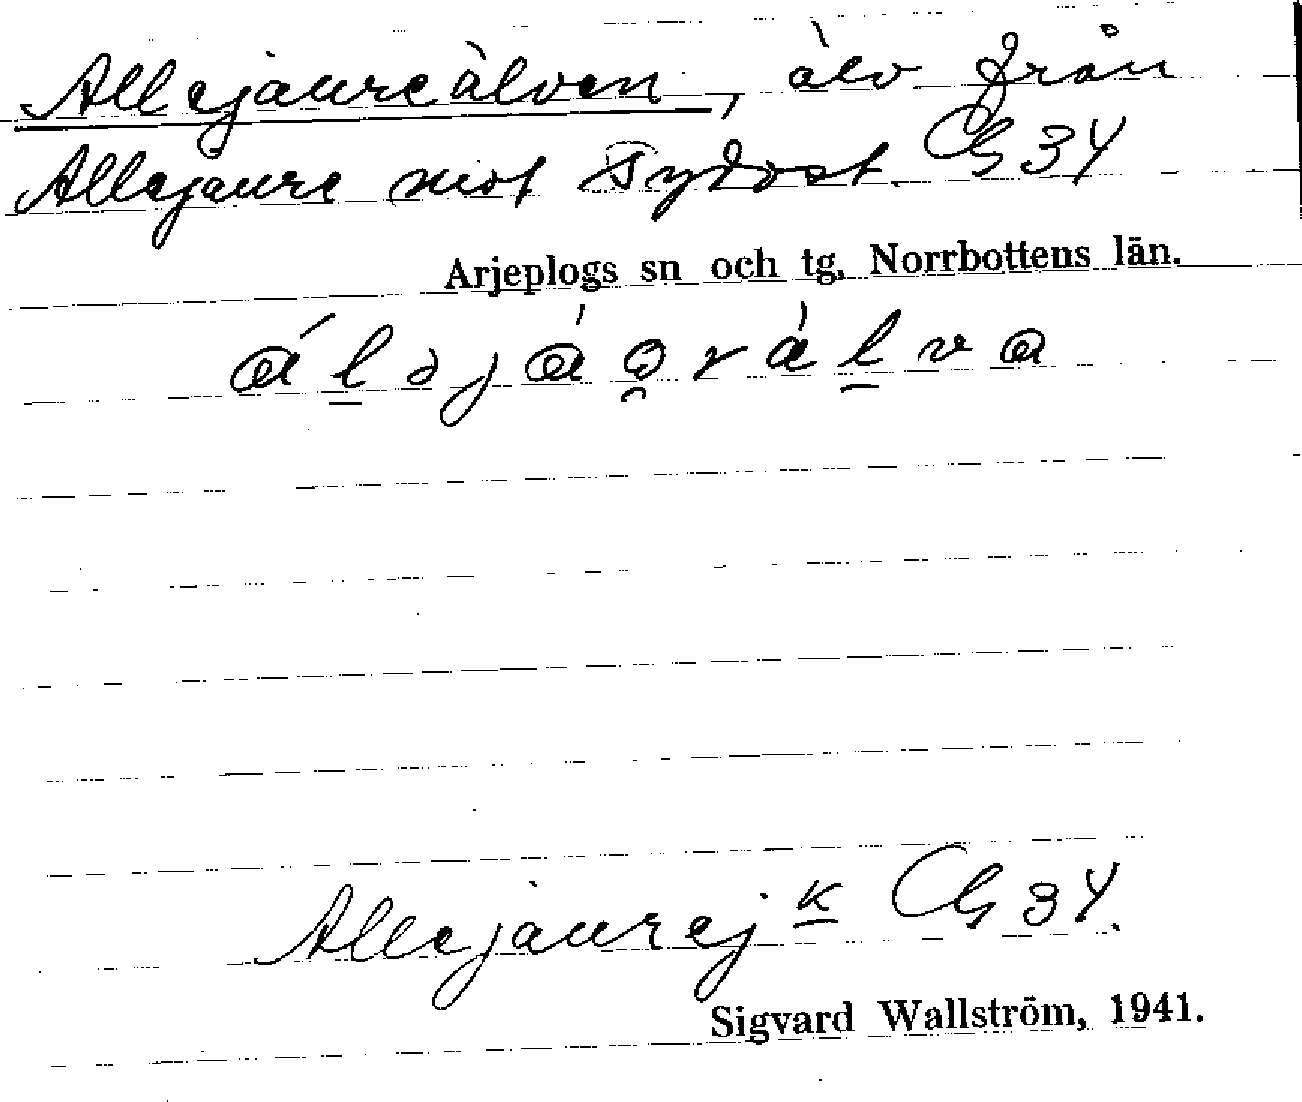 Allejaureälven, älv från
Allejaure mot sydost. CG 34
Arjeplogs sn och tg, Norrbottens län.
Allejaurej k CG 34.
Sigvard Wallström, 1941.